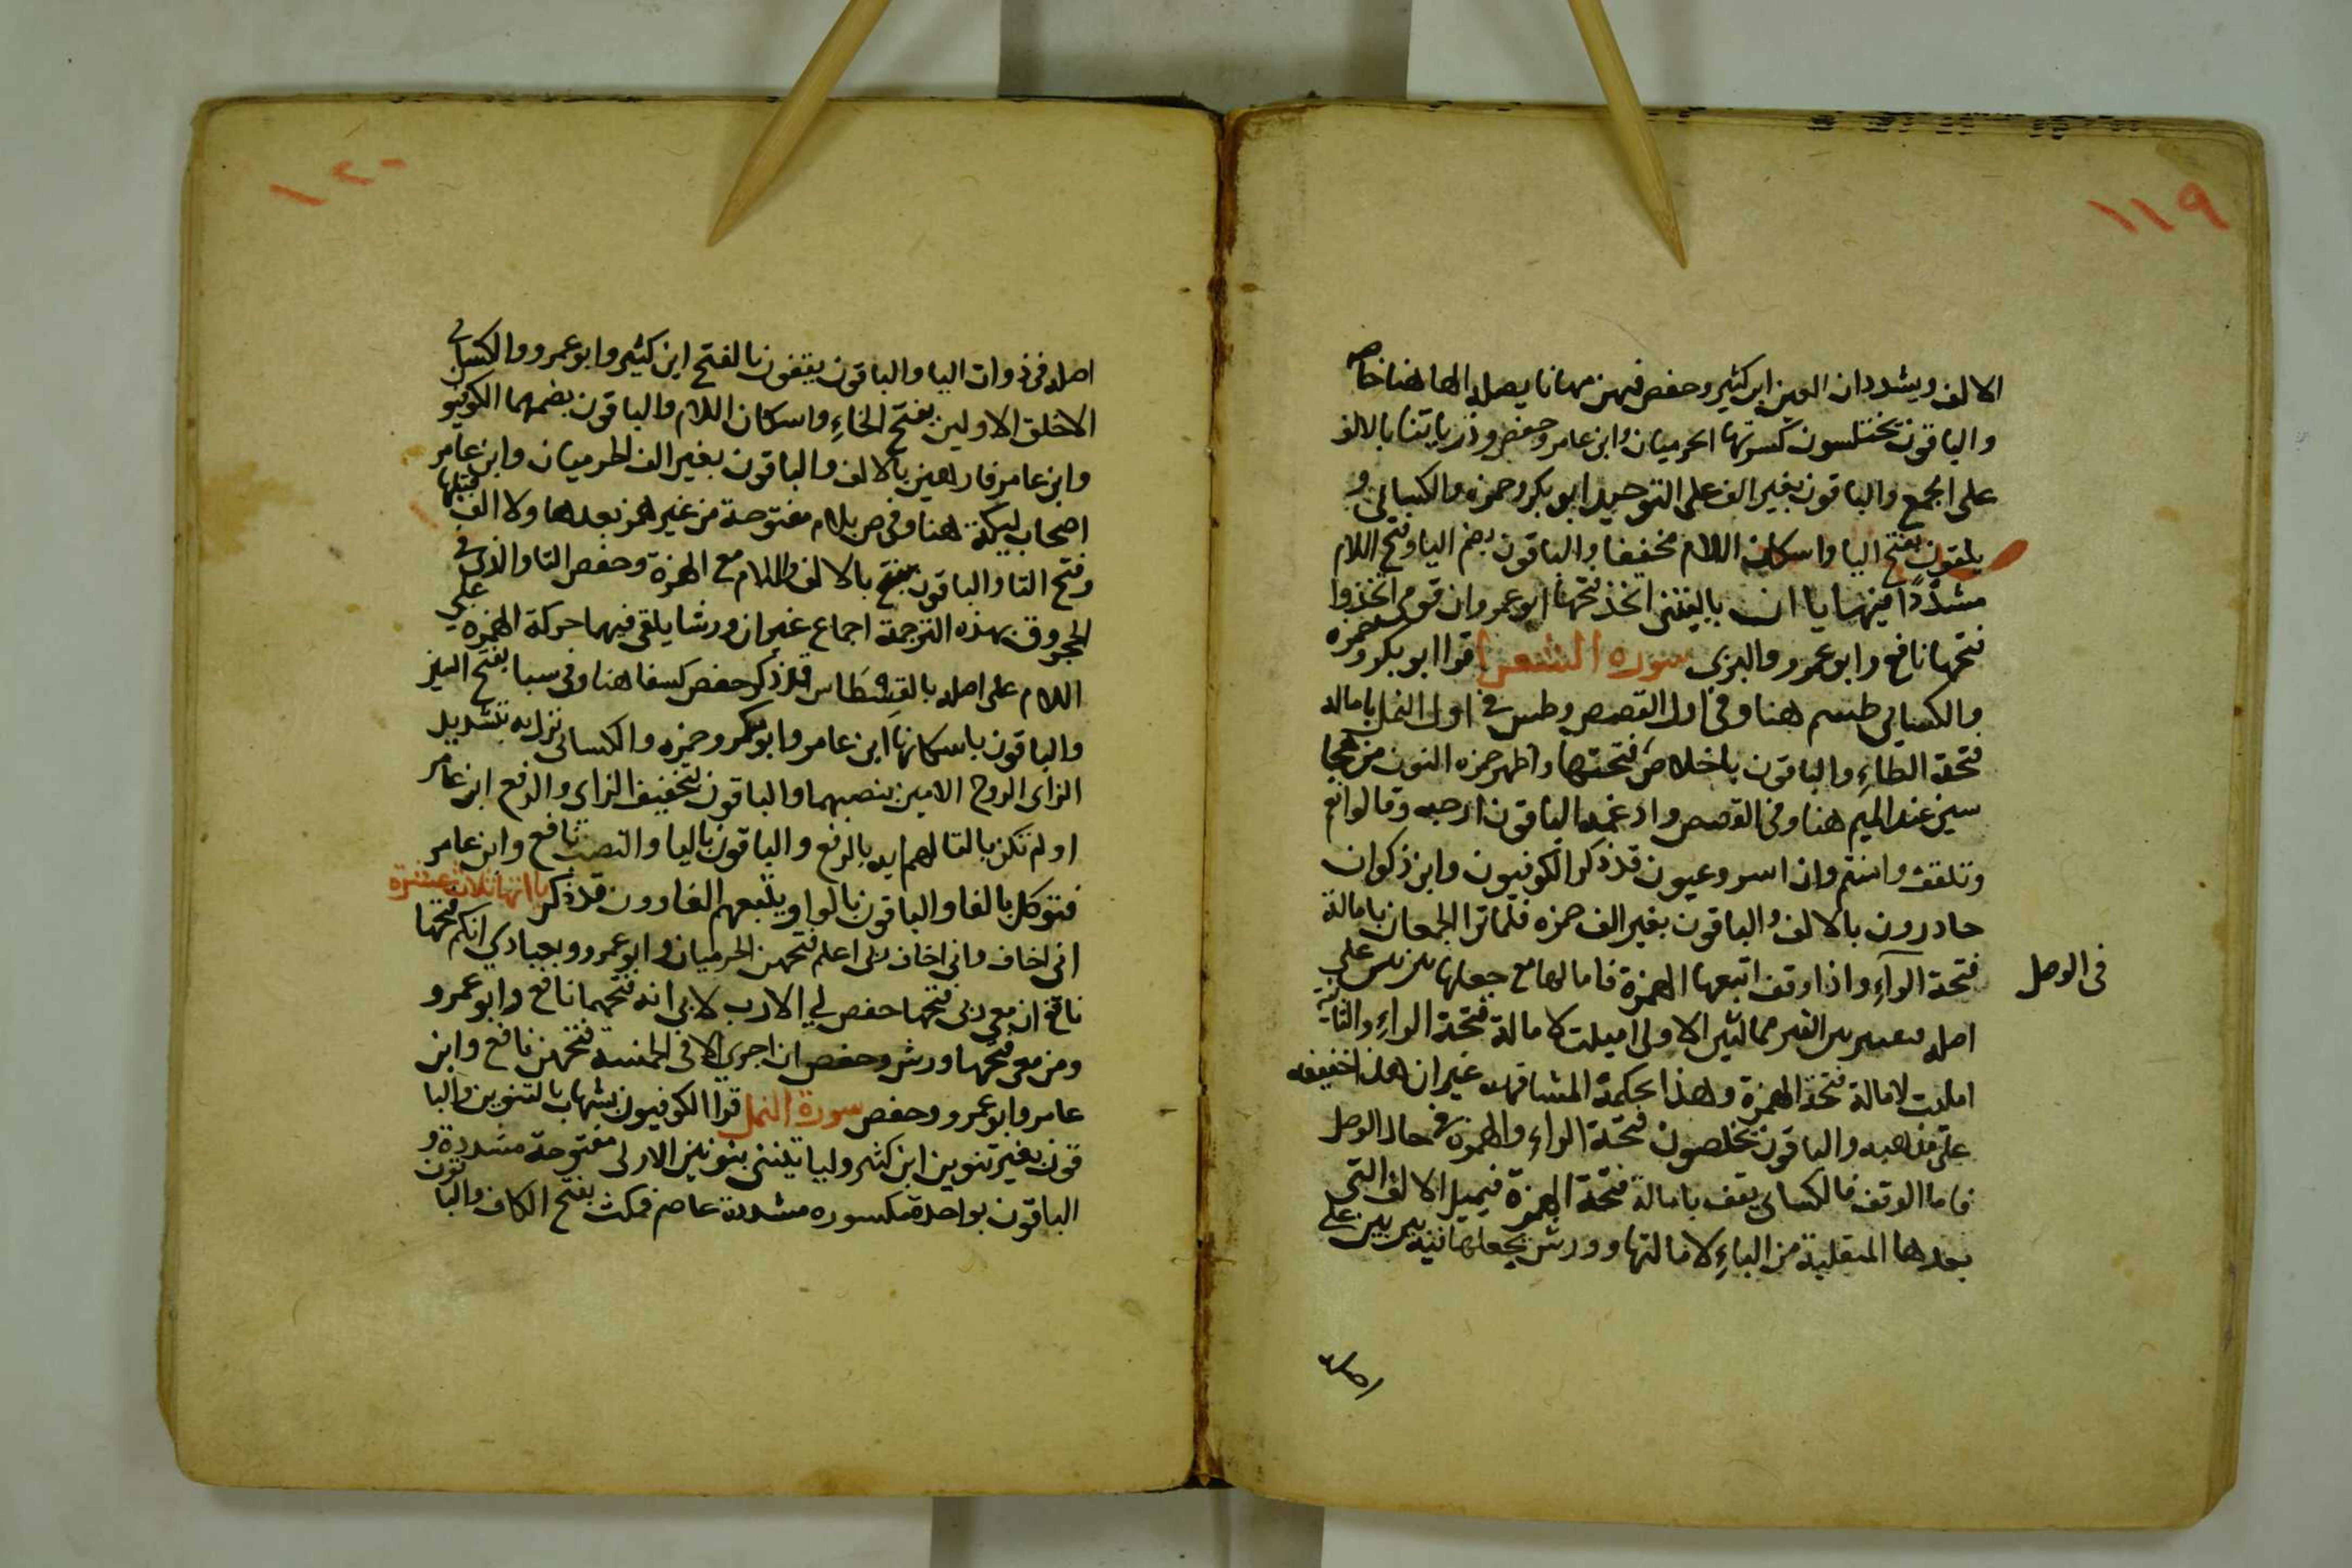 ١١٩
الالف ويشددان العين ابن كثير وحفص فيهن مهانا يصله الها هنا خاصه
والباقون يختلسون كسرتها الحرميان وابن عامر وحفص وذرياتنا بالالف
على الجمع والباقون بغير الف على التوحيد ابو بكر وحمزه والكسائي و
يلقون بفتح اليا واسكان اللام مخففا والباقون بضم اليا وفتح اللام
مشددا فيها يا ان ياليتني اتخذ فتحها ابو عمرو ان قومي اتخذوا
فتحها نافع وابو عمرو والبزي سورة الشعرا قرا ابو بكر وحمزه
والكسائي طسم هنا وفي اول القصص وطس في اول النمل بامالة
فتحة الطاءِ والباقون باخلاص فتحتها واظهر حمزه النون من هجا
سين عند الميم هنا وفي القصص وادغمها الباقون ارجه وقال نعم
وتلقف وامنتم وان اسر وعيون قد ذكر الكوفيون وابن ذكوان
حاذرون بالالف والباقون بغير الف حمزه فلما ترا الجمعان بامالة
فتحة الرآءِ واذا وقف اتبعها الهمزة فامالها مع جعلها بين بين على
في الوصل
اصله فتصير بين الفين ممالتين الاولى اميلت لامالة فتحة الراءِ والثانية
املت لامالة فتحة الهمزة وهذا بحكمة المشافهة غير ان هذا حقيقه
على مذهبه والباقون يخلصون فتحة الراءِ والهمزة في حال الوصل
فاما الوقف فالكسائي يقف بامالة فتحة الهمزة فيميل الالف التي
بعدها المنقلبة من الياءِ لامالتها وورش يجعلها فيه بين بين على
اصله
١٢٠
اصله في ذوات اليا والباقون يقفون بالفتح ابن كثير وابو عمرو والكسائي
الاخلق الاولين بفتح الخاءِ واسكان اللام والباقون بضمهما الكوفيون
وابن عامر فارهين بالالف والباقون بغير الف الحرميان وابن عامر
اصحاب ليكة هنا وفي ص بلام مفتوحة من غير همز بعدها ولا الف قبلها
وفتح التا والباقون بالالف واللام مع الهمزة وخفض التا والذي في
الحجر وق بهذه الترجمة اجماع غير ان ورشا يلقي فيهما حركة الهمزه على
اللام على اصله بالقسطاس قد ذكر حفص كسفا هنا وفي سبا بفتح السين
والباقون باسكانها ابن عامر وابو بكر وحمزه والكسائي نزل به بتشديد
الزاي الروح الامين بنصبهما والباقون بتخفيف الزاي والرفع ابن عامر
اولم تكن بالتا لهم ايه بالرفع والباقون باليا والنصب نافع وابن عامر
فتوكل بالفا والباقون بالواو ويتبعهم الغاوون قد ذكر يااتها ثلاث عشرة
اني اخاف واني اخاف ربي اعلم فتحهن الحرميان وابو عمرو وبعبادي انكم فتحها
نافع ان معي ربي فتحها حفص لي الا رب لابي انه فتحهما نافع وابو عمرو
ومن معي فتحها ورش وحفص ان اجري الا في الخمسه فتحهن نافع وابن
عامر وابو عمرو وحفص سورة النمل قرا الكوفيون بشهاب بالتنوين والبا
قون بغير تنوين ابن كثير اوليا تينني بنونين الاولى مفتوحة مشددة و
الباقون بواحدة مكسوره مشددة عاصم فمكث بفتح الكاف والبا قون